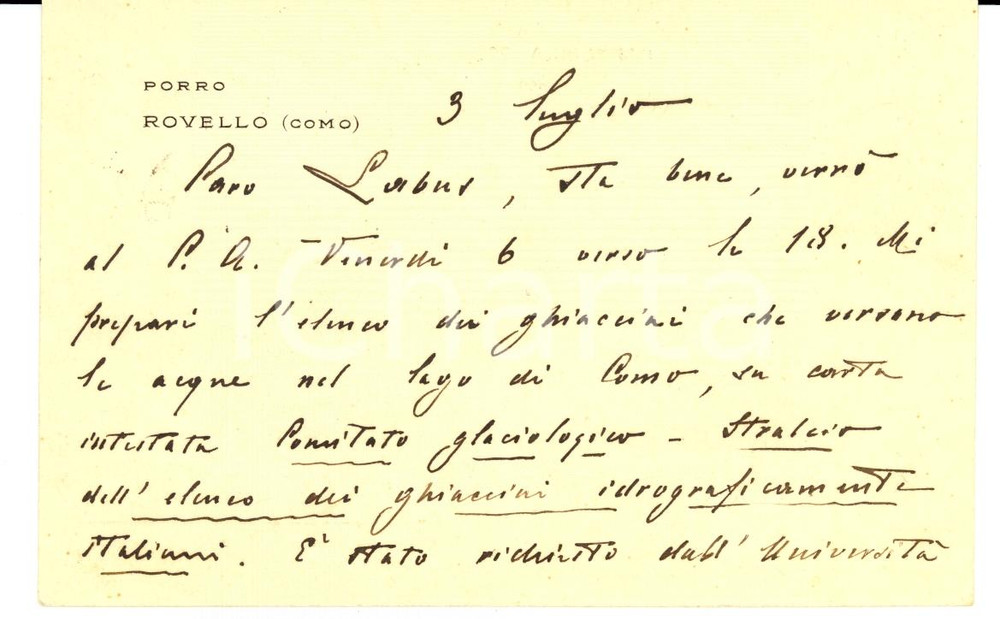 PORRO
ROVELLO (COMO)
3 luglio
Caro Labus, sta bene, verrò
al P. A. Venerdì 6 verso le 18. Mi
prepari l'elenco dei ghiacciai che versano
le acque nel lago di Como, su carta
intestata Comitato glaciologico - Stralcio
dell'elenco dei ghiacciai idrograficamente
italiani. E' stato richiesto dall'Università
iCharta